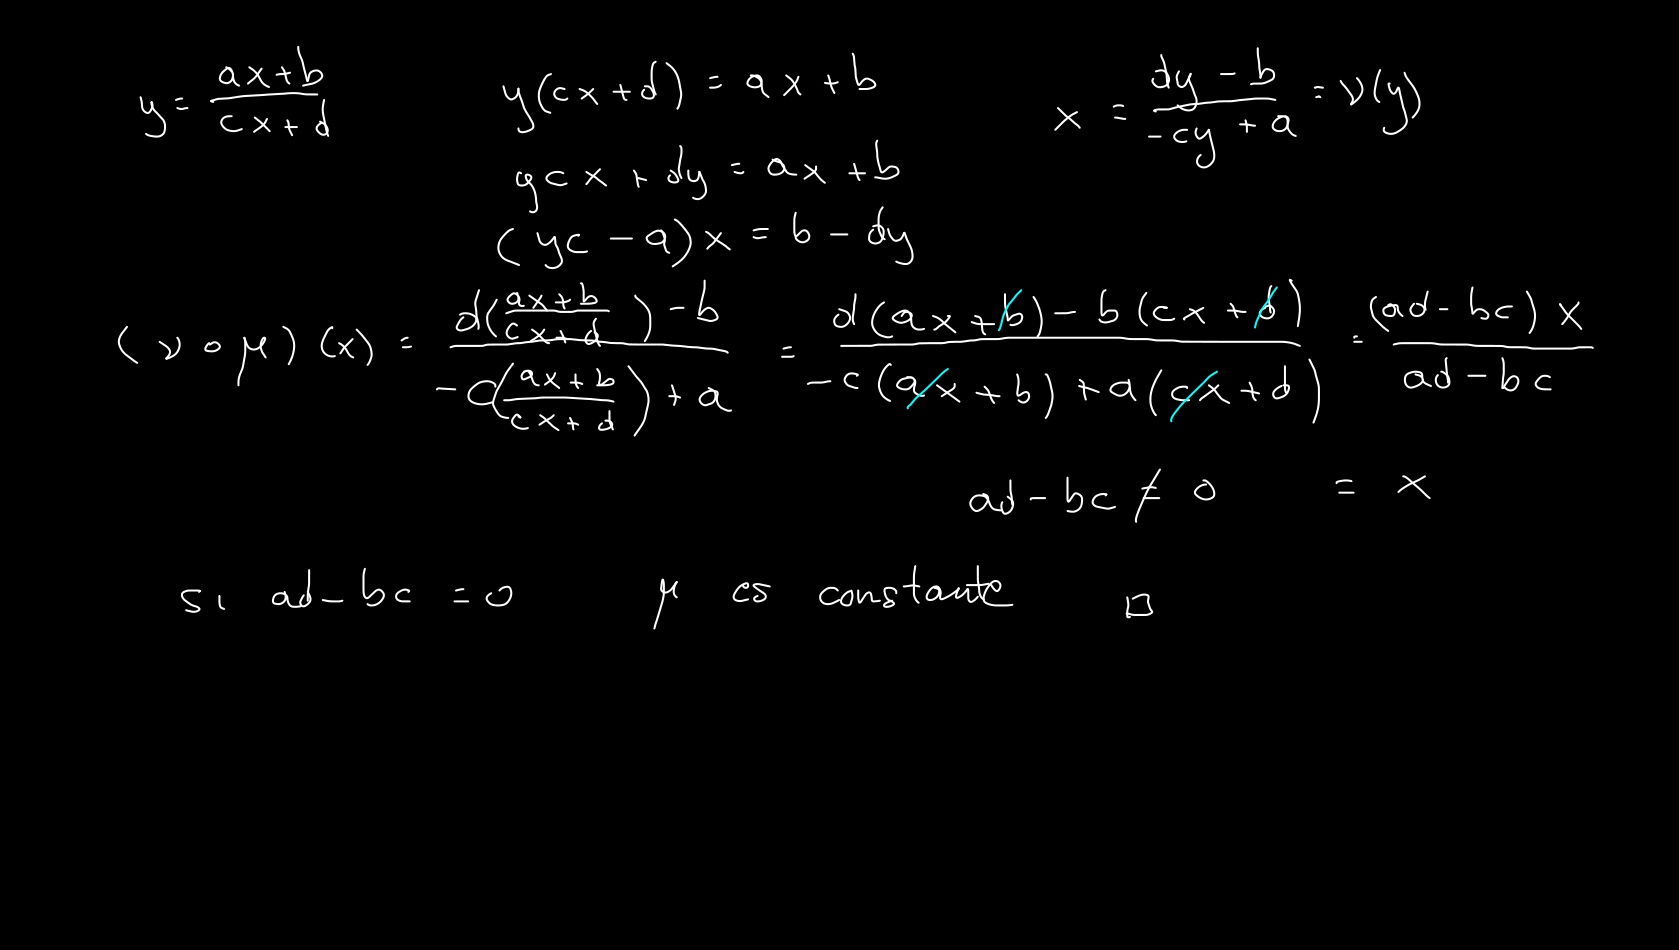 y = \frac{ax+b}{cx+d}    y(cx+d) = ax+b    x = \frac{dy-b}{-cy+a} = ν(y)
ycx + dy = ax + b
(yc - a)x = b - dy
(ν ∘ μ)(x) = \frac{d(\frac{ax+b}{cx+d}) - b}{-c(\frac{ax+b}{cx+d}) + a} = \frac{d(ax+b) - b(cx+d)}{-c(ax+b) + a(cx+d)} = \frac{(ad-bc)x}{ad-bc}
ad - bc ≠ 0    = x
si ad - bc = 0    μ es constante    □